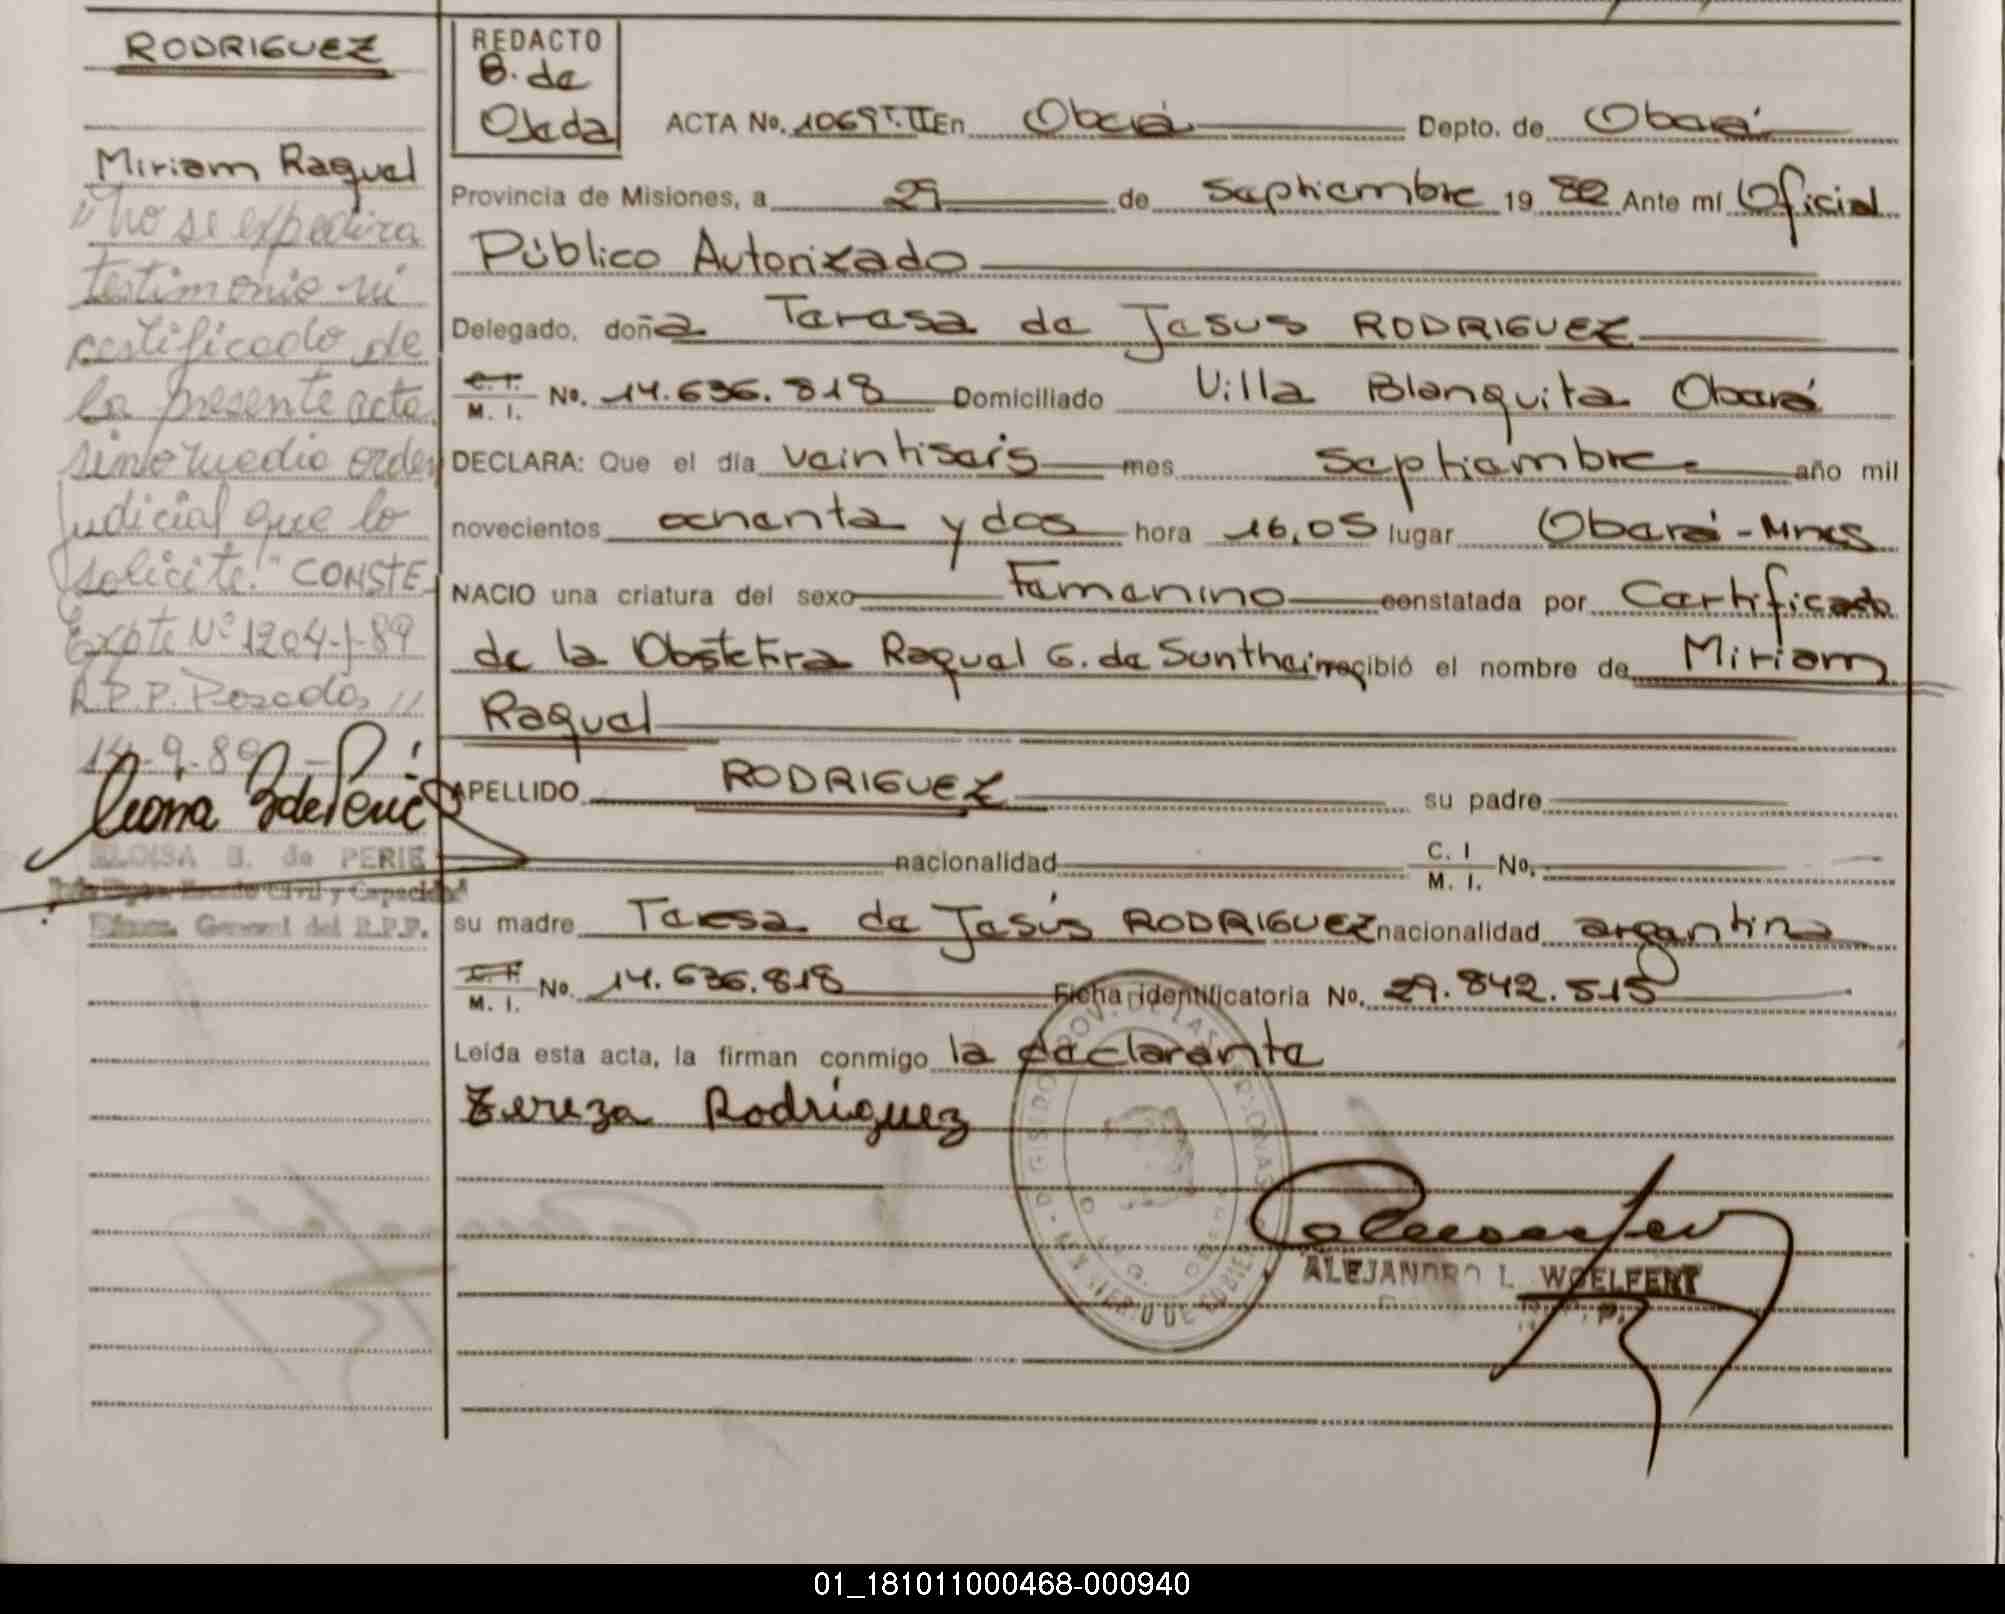 RODRIGUEZ
Miriam Raquel
"No se expedira
testimonio ni
certificado de
la presente acta
sino medio orden
judicial que lo
solicite." CONSTE
Expte Nº 1204-J-89
R.P.P. Posadas,
14-9-89
ELOISA B. de PERIE
Estado Civil y Capacidad
General del R.P.P.
REDACTO
B. de
Ojeda
ACTA No. 1069 T. II En Oberá Depto. de Oberá
Provincia de Misiones, a 29 de Septiembre 19 82 Ante mí Oficial
Público Autorizado
Delegado, doña Teresa de Jesus RODRIGUEZ
C. I. M. I. No. 14.636.818 Domiciliado Villa Blanquita Oberá
DECLARA: Que el día veintiseis mes Septiembre año mil
novecientos ochenta y dos hora 16,05 lugar Oberá - Mnes
NACIO una criatura del sexo Femenino constatada por Certificado
de la Obstetra Raquel G. de Suntheim recibió el nombre de Miriam
Raquel
APELLIDO RODRIGUEZ su padre
nacionalidad C. I M. I. No.
su madre Teresa de Jesús RODRIGUEZ nacionalidad argentina
C. I. M. I. No. 14.636.818 Ficha identificatoria No. 29.842.515
Leída esta acta, la firman conmigo la declarante
Tereza Rodriguez
ALEJANDRO L. WOELFERT
01_181011000468-000940